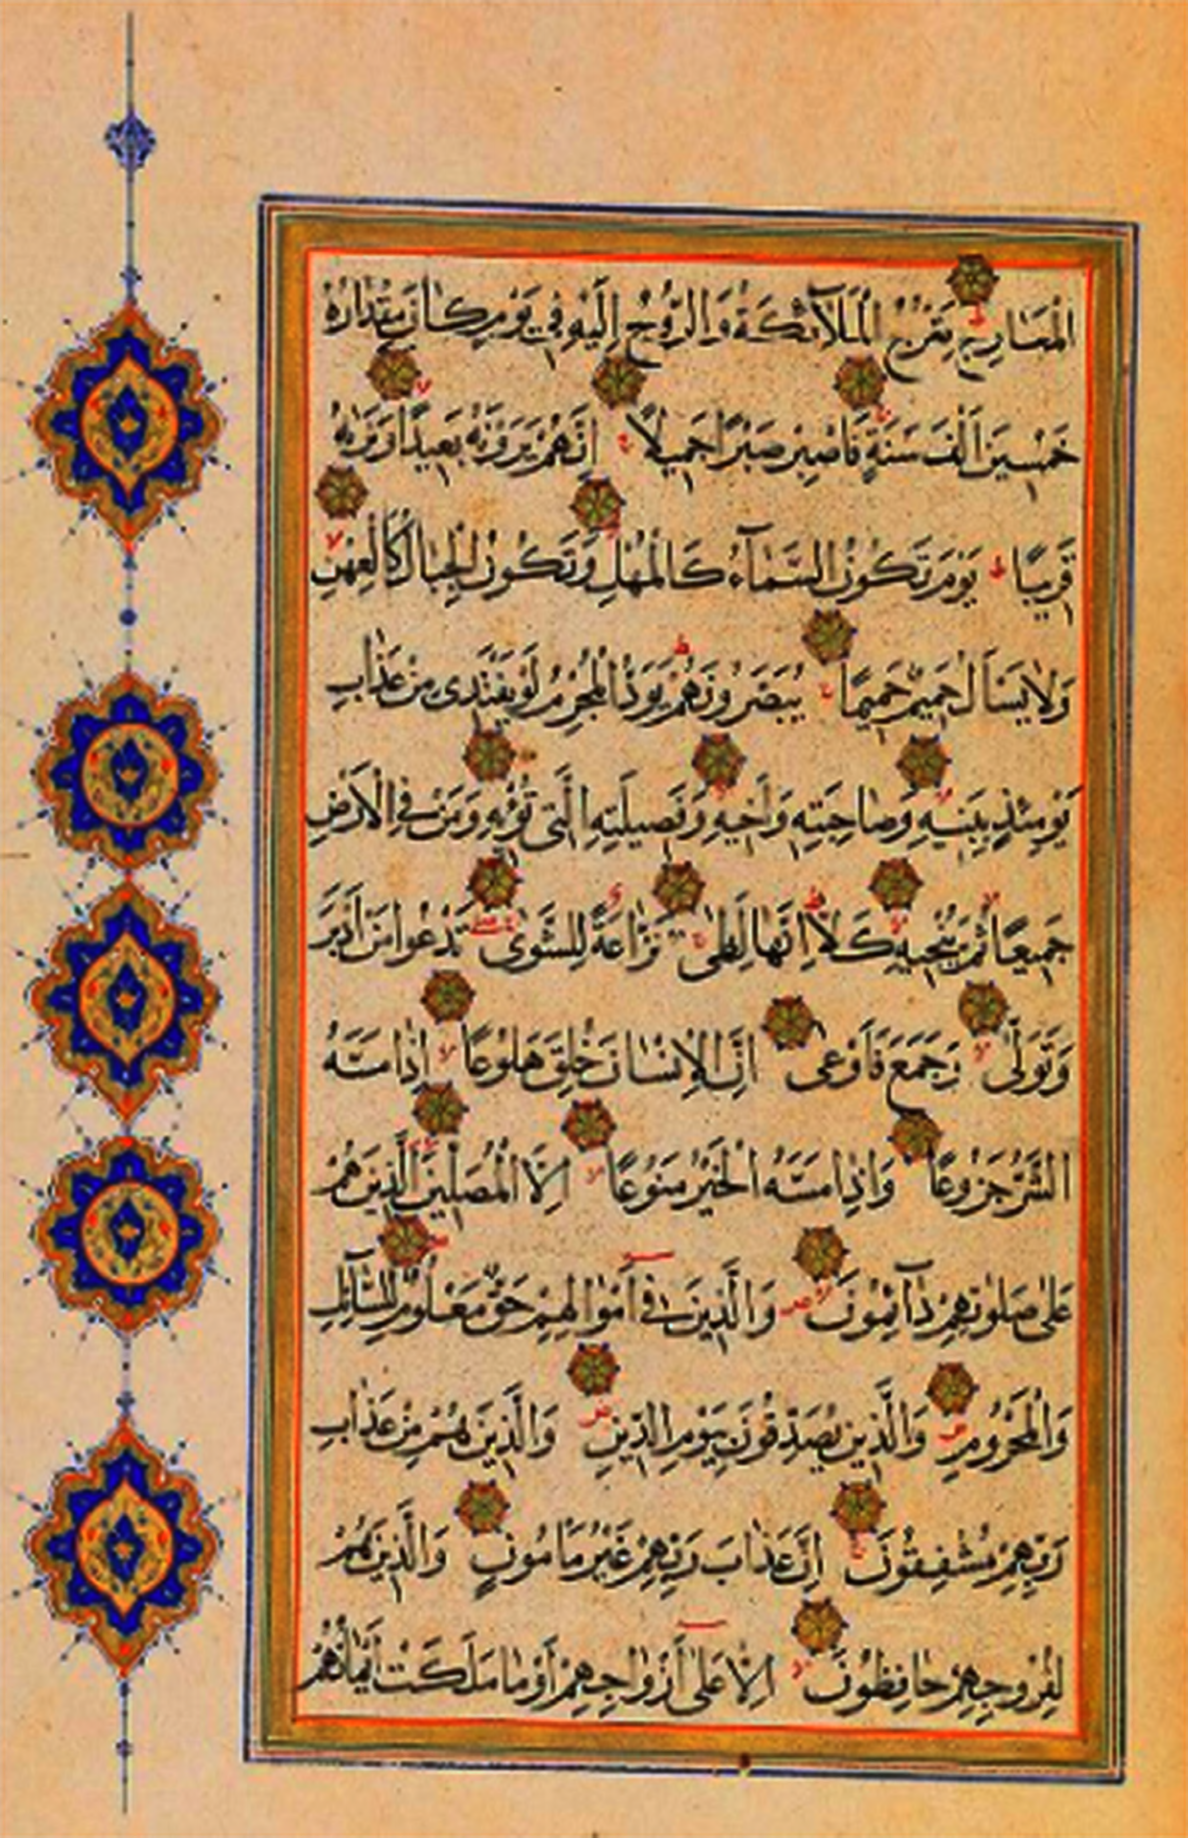 الْمَعَارِجِ تَعْرُجُ الْمَلَآئِكَةُ وَالرُّوحُ إِلَيْهِ فِي يَوْمٍ كَانَ مِقْدَارُهُ
خَمْسِينَ أَلْفَ سَنَةٍ فَاصْبِرْ صَبْرًا جَمِيلًا إِنَّهُمْ يَرَوْنَهُ بَعِيدًا وَنَرَاهُ
قَرِيبًا يَوْمَ تَكُونُ السَّمَآءُ كَالْمُهْلِ وَتَكُونُ الْجِبَالُ كَالْعِهْنِ
وَلَا يَسْأَلُ حَمِيمٌ حَمِيمًا يُبَصَّرُونَهُمْ يَوَدُّ الْمُجْرِمُ لَوْ يَفْتَدِي مِنْ عَذَابِ
يَوْمِئِذٍ بِبَنِيهِ وَصَاحِبَتِهِ وَأَخِيهِ وَفَصِيلَتِهِ الَّتِي تُؤْيهِ وَمَنْ فِي الْأَرْضِ
جَمِيعًا ثُمَّ يُنْجِيهِ كَلَّا إِنَّهَا لَظَى نَزَّاعَةً لِلشَّوَى تَدْعُوا مَنْ أَدْبَرَ
وَتَوَلَّى وَجَمَعَ فَأَوْعَى إِنَّ الْإِنْسَانَ خُلِقَ هَلُوعًا إِذَا مَسَّهُ
الشَّرُّ جَزُوعًا وَإِذَا مَسَّهُ الْخَيْرُ مَنُوعًا إِلَّا الْمُصَلِّينَ الَّذِينَ هُمْ
عَلَى صَلَوتِهِمْ دَآئِمُونَ وَالَّذِينَ فِي أَمْوَالِهِمْ حَقٌّ مَعْلُومٌ لِلسَّآئِلِ
وَالْمَحْرُومِ وَالَّذِينَ يُصَدِّقُونَ بِيَوْمِ الدِّينِ وَالَّذِينَ هُمْ مِنْ عَذَابِ
رَبِّهِمْ مُشْفِقُونَ إِنَّ عَذَابَ رَبِّهِمْ غَيْرُ مَأْمُونٍ وَالَّذِينَ هُمْ
لِفُرُوجِهِمْ حَافِظُونَ إِلَّا عَلَى أَزْوَاجِهِمْ أَوْ مَا مَلَكَتْ أَيْمَانُهُمْ